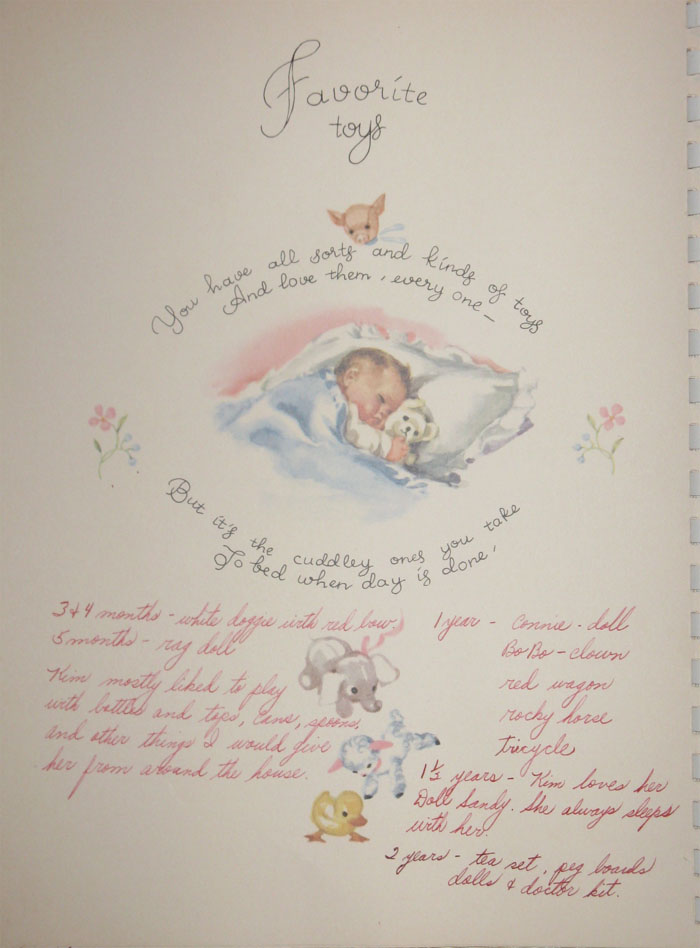 Favorite
toys
You have all sorts and kinds of toys
And love them, every one—
But it's the cuddley ones you take
To bed when day is done.
3 & 4 months - white doggie with red bow
5 months - rag doll
Kim mostly liked to play
with bottles and tops, cans, spoons,
and other things I would give
her from around the house.
1 year - Connie - doll
BoBo - clown
red wagon
rocky horse
tricycle
1½ years - Kim loves her
Doll Sandy. She always sleeps
with her.
2 years - tea set, peg boards
dolls & doctor kit.